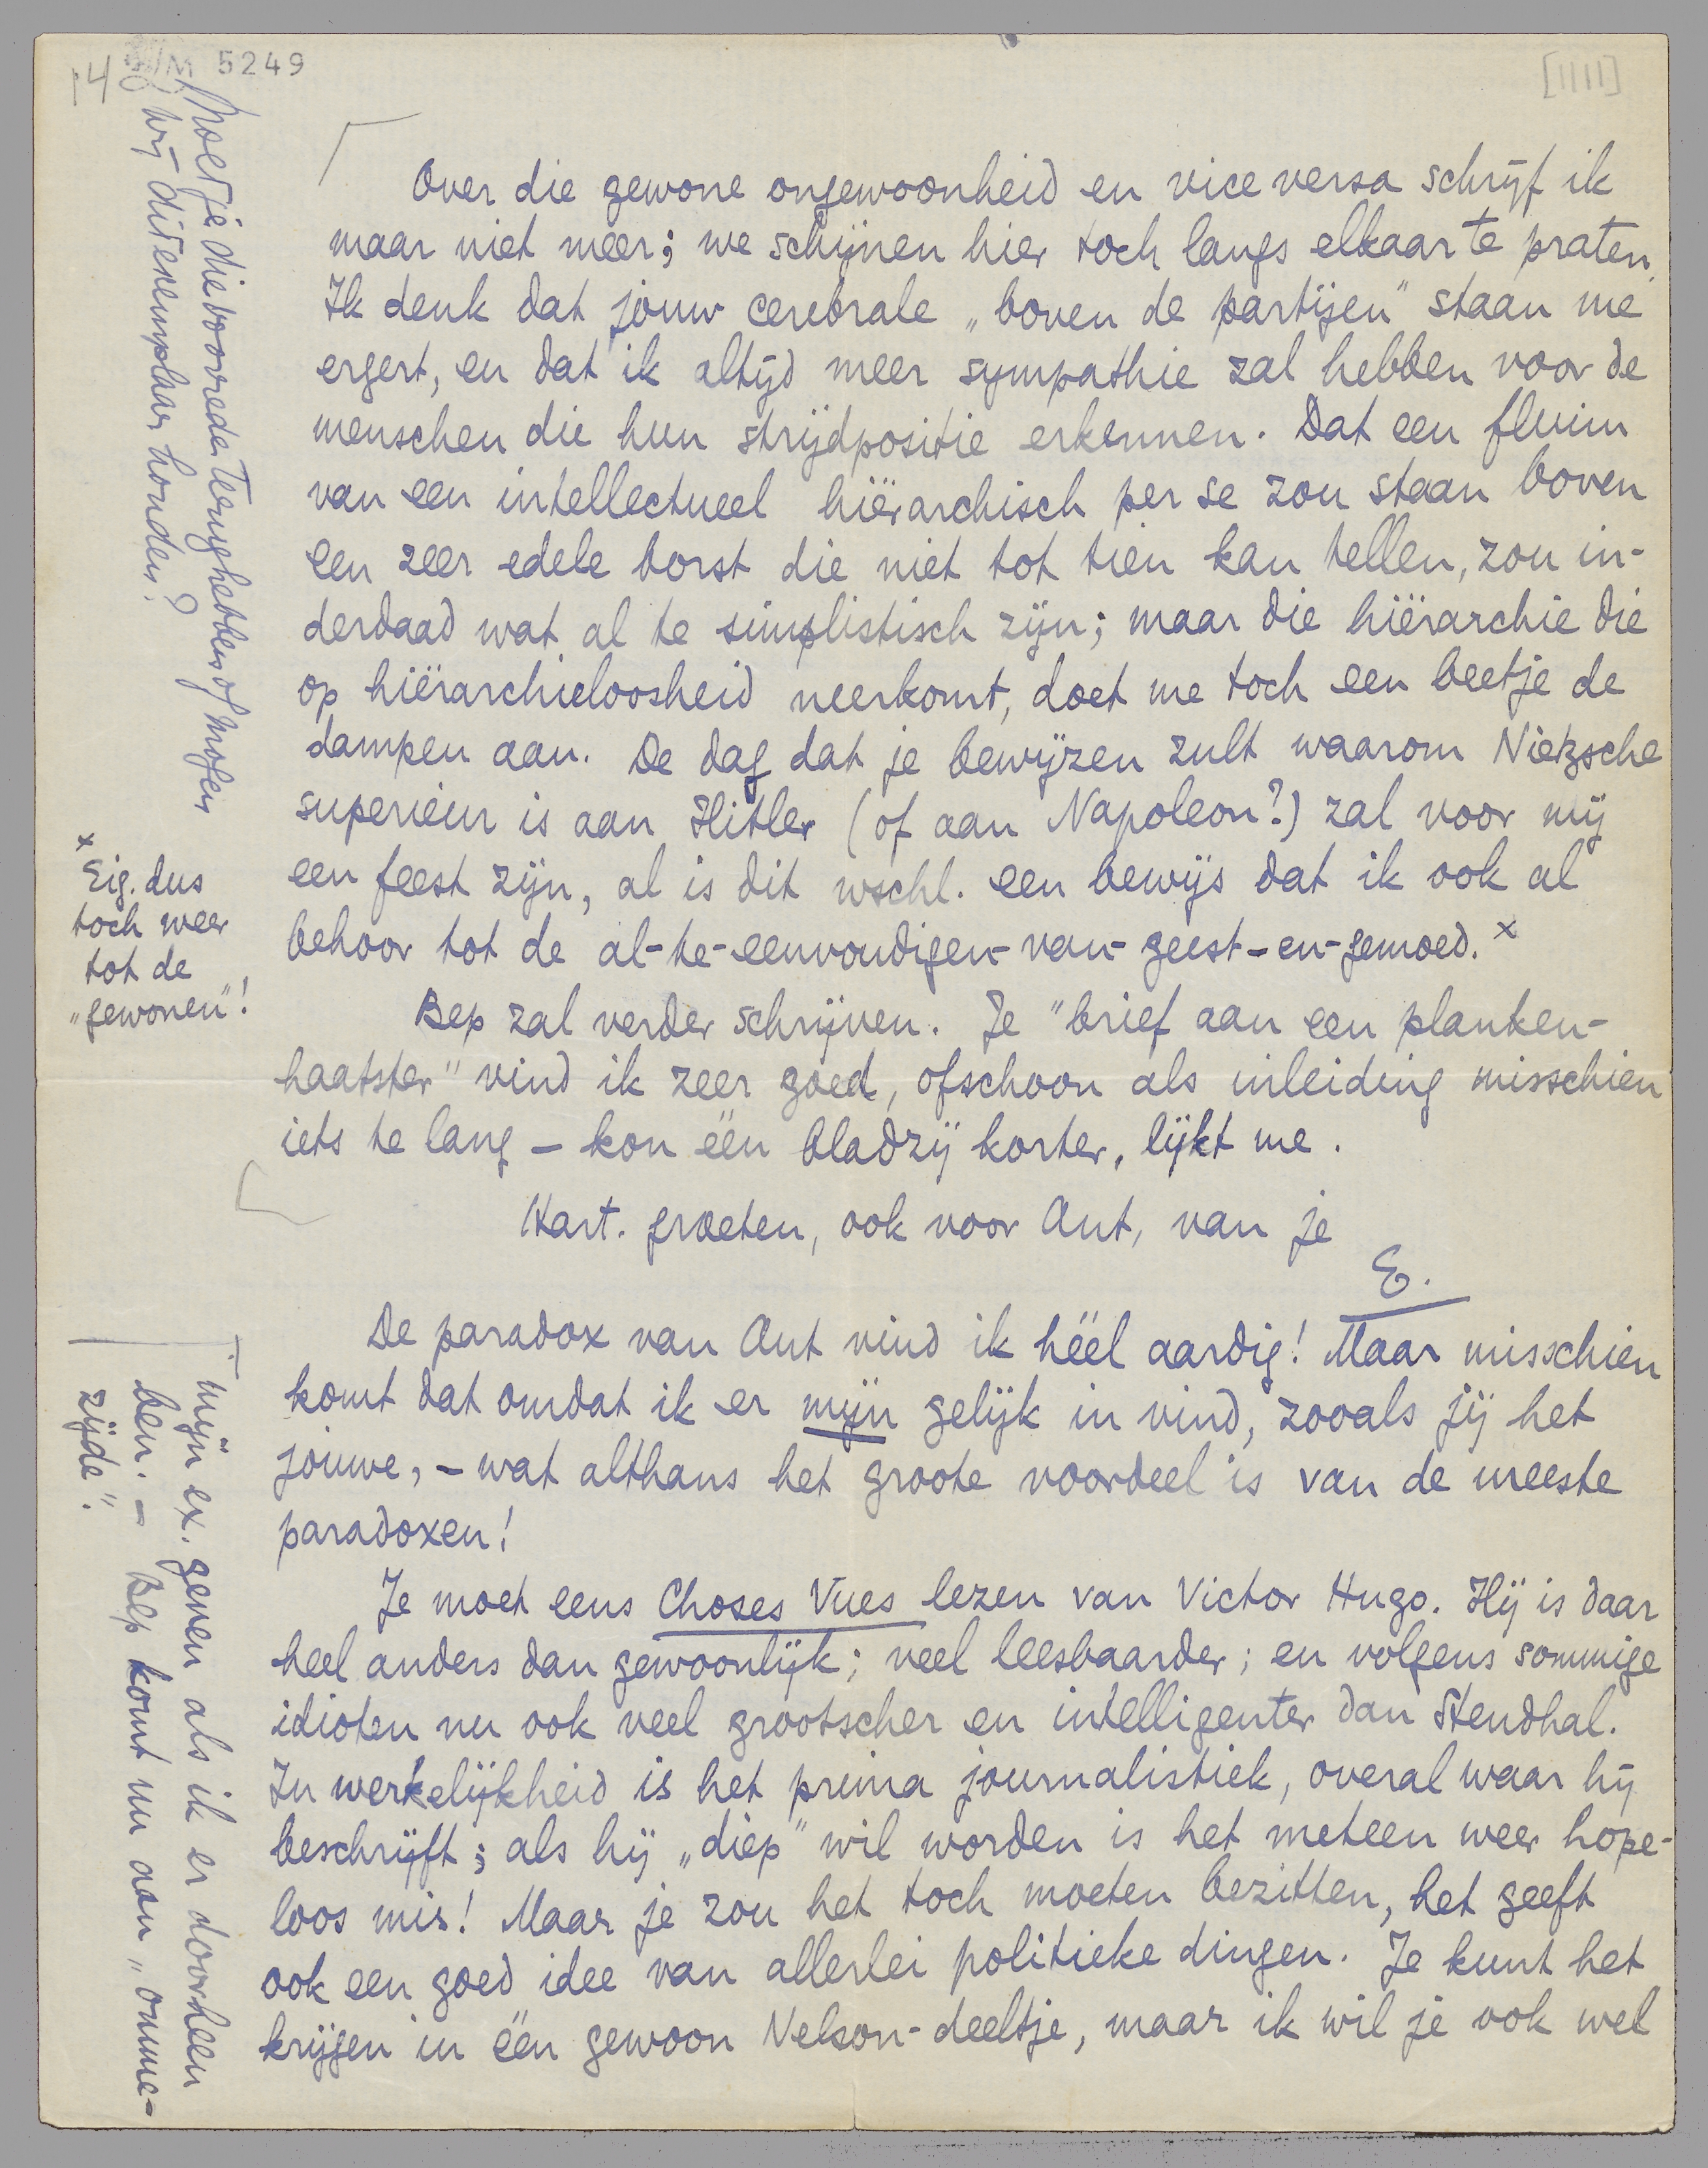 14
M 5249
[1111]
Over die gewone ongewoonheid en vice versa schrijf ik
maar niet meer; we schijnen hier toch langs elkaar te praten.
Ik denk dat jouw cerebrale „boven de partijen" staan me
ergert, en dat ik altijd meer sympathie zal hebben voor de
menschen die hun strijdpositie erkennen. Dat een fluim
van een intellectueel hiërarchisch per se zou staan boven
een zeer edele borst die niet tot tien kan tellen, zou in-
derdaad wat al te simplistisch zijn; maar die hiërarchie die
op hiërarchieloosheid neerkomt, doet me toch een beetje de
dampen aan. De dag dat je bewijzen zult waarom Nietzsche
superieur is aan Hitler (of aan Napoleon?) zal voor mij
een feest zijn, al is dit wschl. een bewijs dat ik ook al
behoor tot de al-te-eenvoudigen-van-geest-en-gemoed. x
x Eig. dus
toch weer
tot de
„gewonen"!
Bep zal verder schrijven. Je "brief aan een planken-
haatster" vind ik zeer goed, ofschoon als inleiding misschien
iets te lang – kon één bladzij korter, lijkt me.
Hart. groeten, ook voor Ant, van je
E.
De paradox van Ant vind ik héél aardig! Maar misschien
komt dat omdat ik er mijn gelijk in vind, zooals jij het
jouwe, – wat althans het groote voordeel is van de meeste
paradoxen!
Je moet eens Choses Vues lezen van Victor Hugo. Hij is daar
heel anders dan gewoonlijk; veel leesbaarder; en volgens sommige
idioten nu ook veel grootscher en intelligenter dan Stendhal.
In werkelijkheid is het prima journalistiek, overal waar hij
beschrijft; als hij „diep" wil worden is het meteen weer hope-
loos mis! Maar je zou het toch moeten bezitten, het geeft
ook een goed idee van allerlei politieke dingen. Je kunt het
krijgen in één gewoon Nelson-deeltje, maar ik wil je ook wel
mijn ex. geven als ik er doorheen
ben. – Bep komt nu aan „omme-
zijde".
Moet je die boorrede terughebben of mogen
wij dit exemplaar houden?